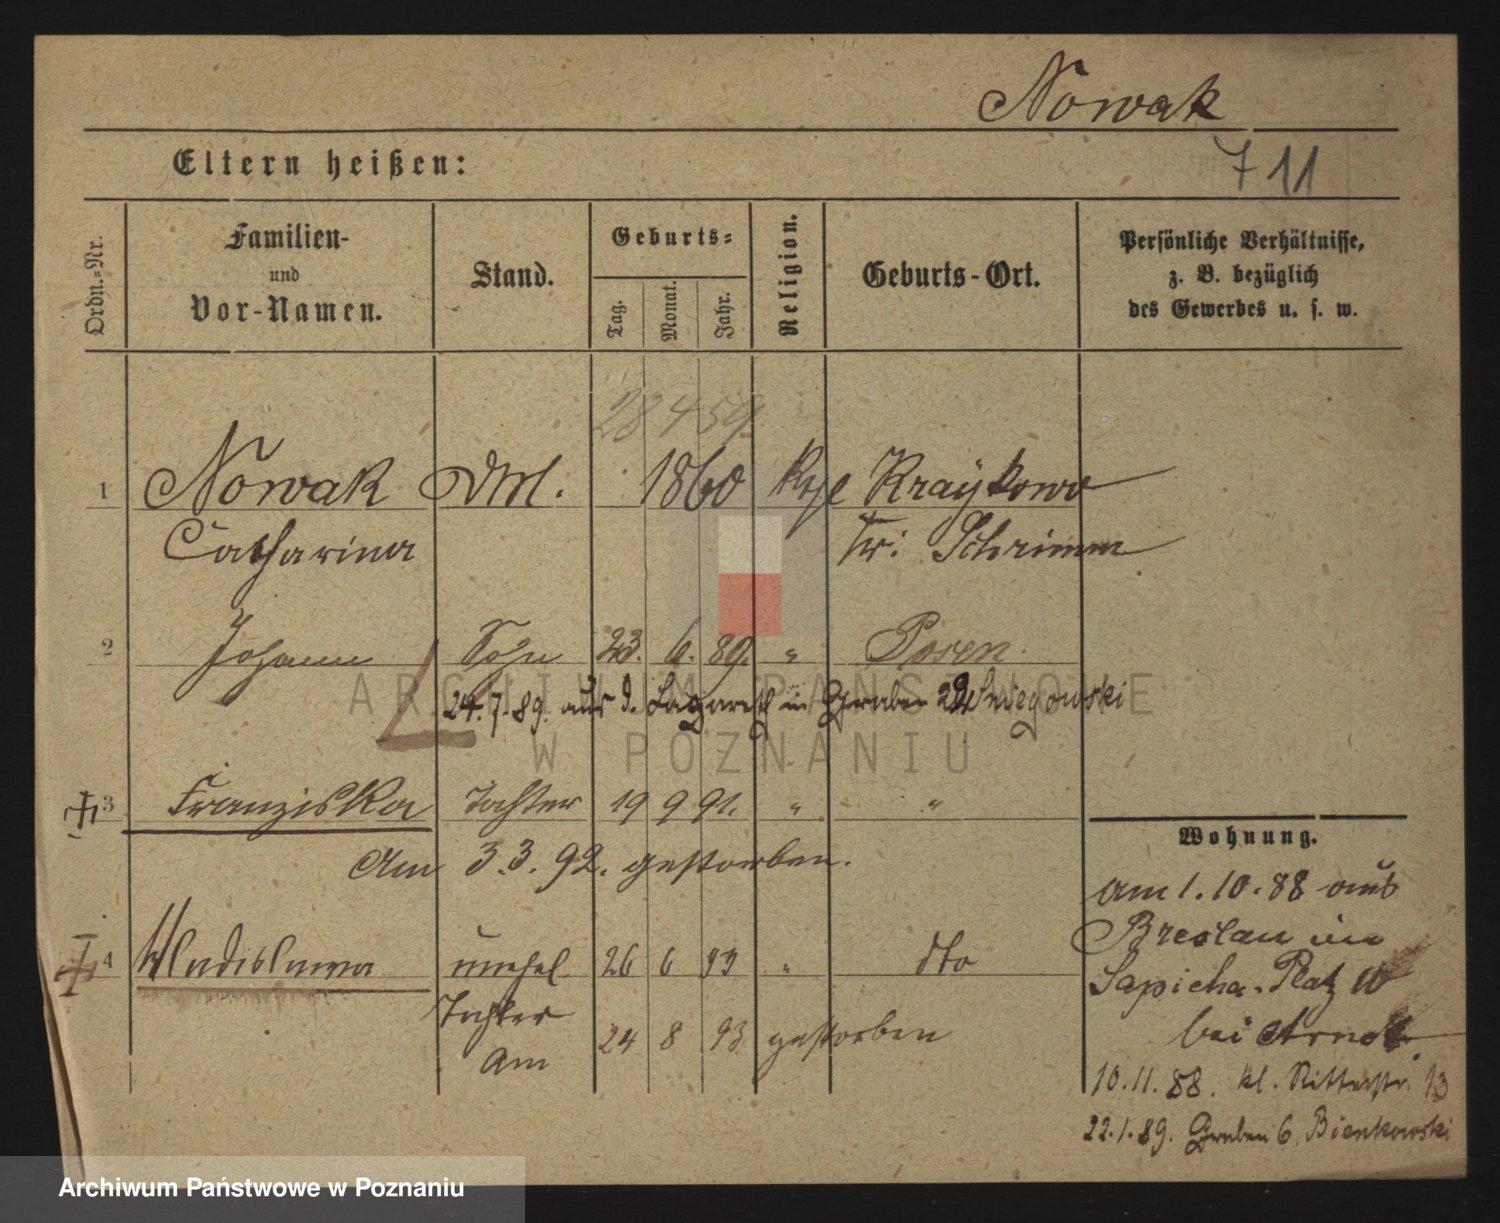 Nowak
711
Eltern heißen:
Ordn.-Nr.
Familien-
und
Vor-Namen.
Stand.
Geburts-
Tag.
Monat.
Jahr.
Religion.
Geburts-Ort.
Persönliche Verhältnisse,
z. B. bezüglich
des Gewerbes u. s. w.
28 4 59
1 Nowak 1860 Kraykowo
Catharina Kr: Schrimm
2 Johann Sohn 23. 6. 89. " Posen
24.7.89. aus d. Lazareth in Graben 22
ARCHIWUM PAŃSTWOWE
W POZNANIU
3 Franziska Tochter 19 9 91. " "
Am 3.3.92. gestorben.
4 Wladislawa unehel. 26 6 93 " dto
Tochter
Am 24 8 93 gestorben
Wohnung.
am 1.10.88 aus
Breslau in
Sapieha-Platz 10
bei
10.11.88. kl. Ritterstr. 13
22.1.89. Graben 6. Bienkowski
Archiwum Państwowe w Poznaniu